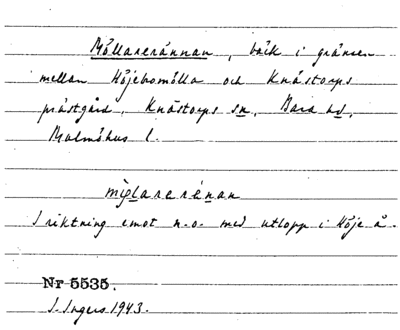 Möllarerännan, bäck i gränsen
mellan Höjebomölla och Knästorps
prästgård, Knästorps sn, Bara hd,
Malmöhus l.
I riktning emot n.o. med utlopp i Höje å.
Nr 5535.
I. Ingers 1943.